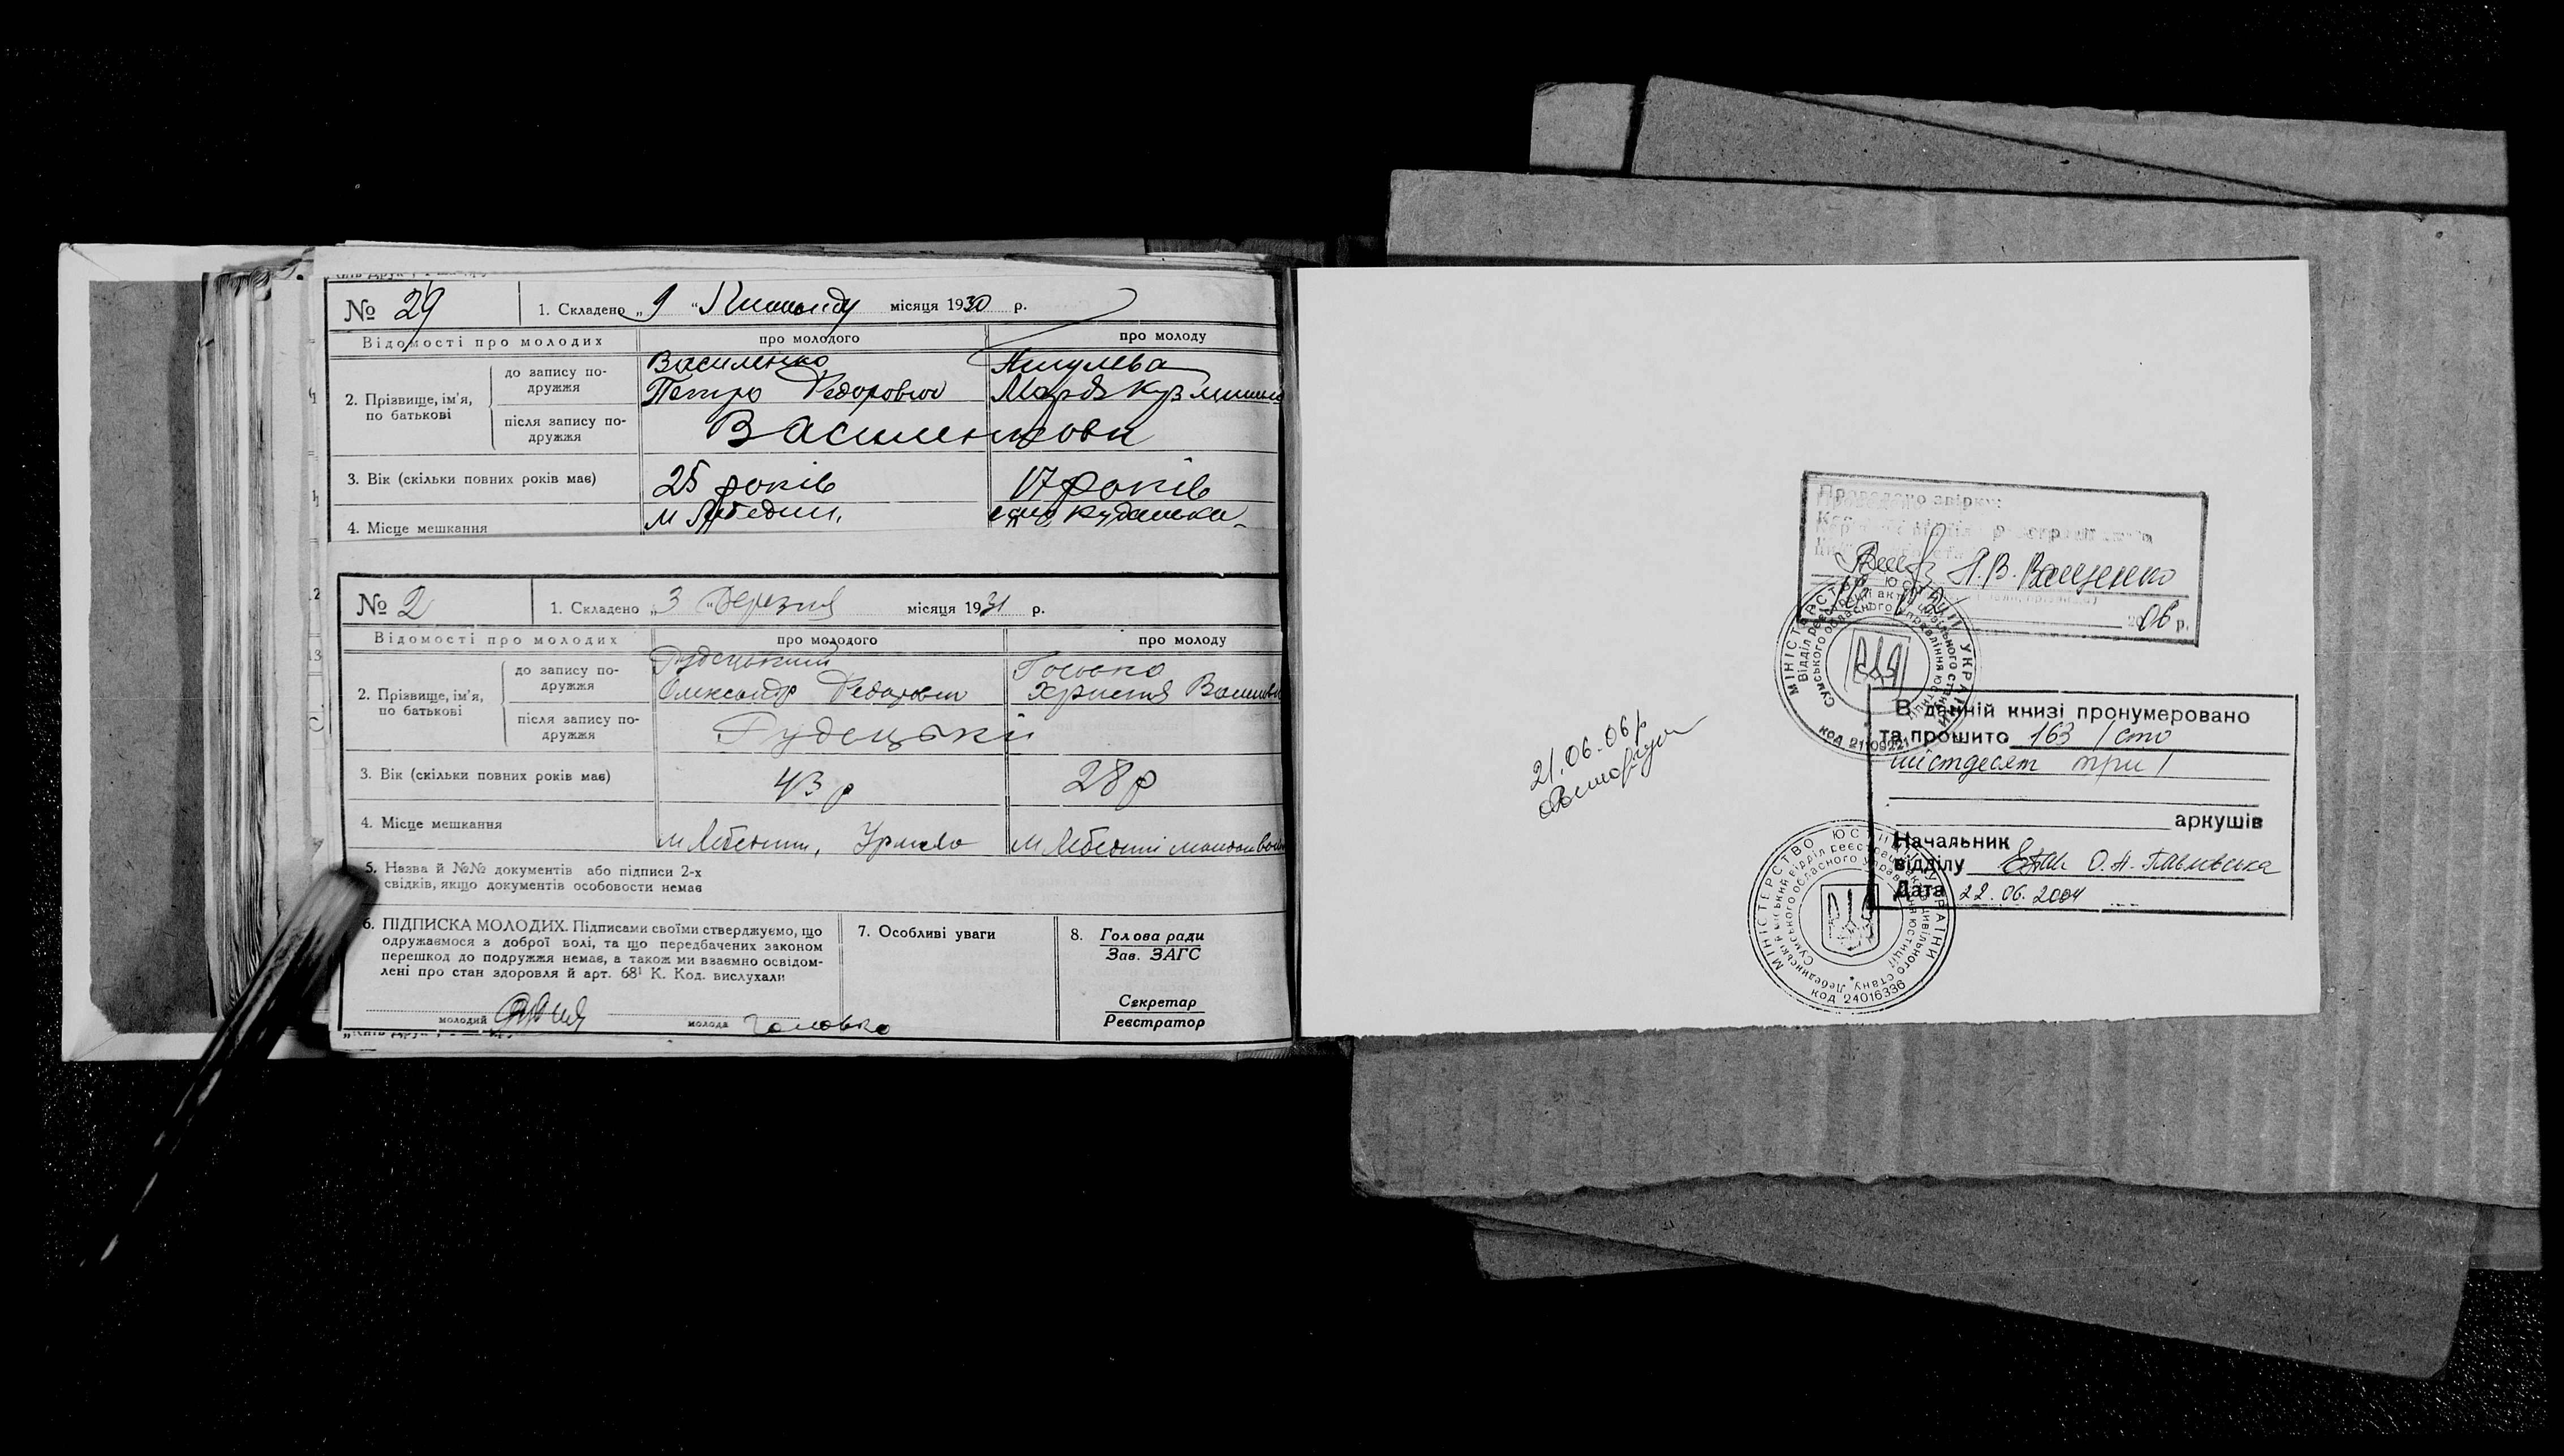 № 29
1. Складено „ 9 “ Листопаду місяця 1930 р.
Відомості про молодих
про молодого
про молоду
2. Прізвище, ім'я, по батькові
до запису подружжя
Василенко
Петро Федорович
Марія
після запису подружжя
Василенкови
3. Вік (скільки повних років має)
25 років
17 років
4. Місце мешкання
м Лебедин,
№ 2
1. Складено „ 3 “ Березня місяця 1931 р.
Відомості про молодих
про молодого
про молоду
2. Прізвище, ім'я, по батькові
до запису подружжя
Рудецький
Олександр Федорович
Христя
після запису подружжя
Рудецькі
3. Вік (скільки повних років має)
43 р
28 р
4. Місце мешкання
м Лебедин,
м Лебедин
5. Назва й №№ документів або підписи 2-х
свідків, якщо документів особовости немає
6. ПІДПИСКА МОЛОДИХ. Підписами своїми стверджуємо, що
одружаємося з доброї волі, та що передбачених законом
перешкод до подружжя немає, а також ми взаємно освідом-
лені про стан здоровля й арт. 68¹ К. Код. вислухали
молодий
молода
7. Особливі уваги
8. Голова ради
Зав. ЗАГС
Секретар
Реєстратор
Проведено звірку:
Н.В. Ващенко
2006 р.
МІНІСТЕРСТВО ЮСТИЦІЇ УКРАЇНИ
код 21109221
21.06.06р
В данній книзі пронумеровано
та прошито 163 /сто
шістдесят три/
аркушів
Начальник
відділу О.А. Павлівська
Дата 22.06.2004
МІНІСТЕРСТВО ЮСТИЦІЇ УКРАЇНИ
код 24016336